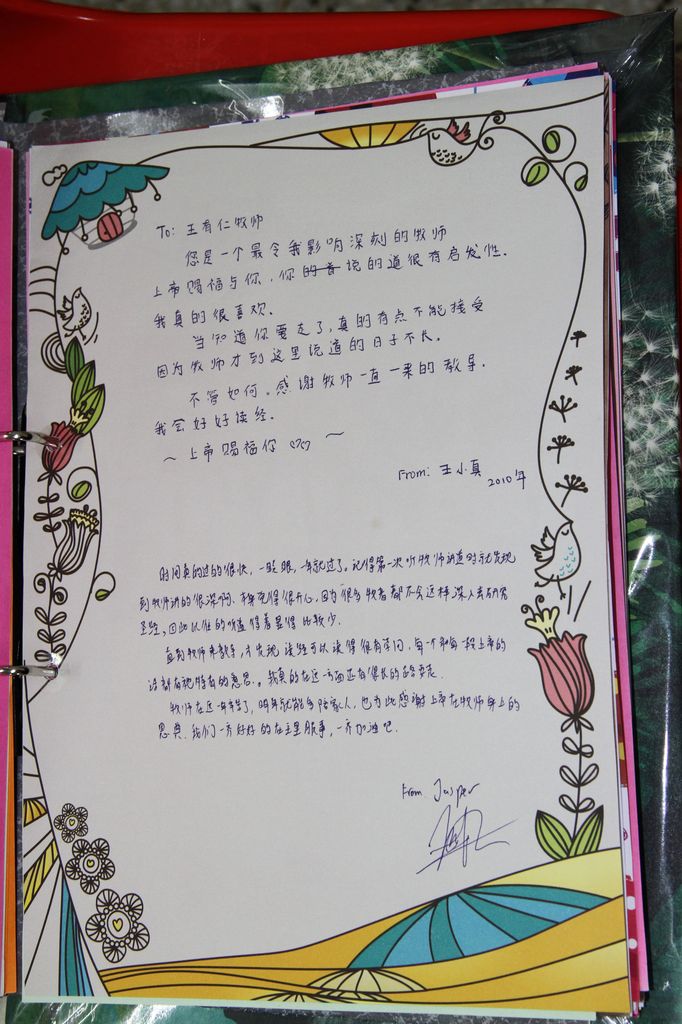 To: 王有仁牧师
您是一个最令我影响深刻的牧师
上帝赐福与你，你的音说的道很有启发性。
我真的很喜欢。
当知道你要走了，真的有点不能接受
因为牧师才到这里说道的日子不长。
不管如何。感谢牧师一直一来的教导。
我会好好读经。
~ 上帝赐福你 ♡♡ ~
From: 王小真
2010年
时间真的过的很快，一眨眼，一年就过了。记得第一次听牧师讲道时就发现
到牧师讲的很深啊，觉得很开心，因为很多牧者都不会这样深入去研究
圣经，因此以往的听道得着显得比较少。
直到牧师来教导，才发现读经可以读得很有学问，每一个和每一段上帝的
话都有祂特有的意思。我真的在这一方面还有很长的路要走
牧师在这一年了，明年就能多陪家人，也为此感谢上帝在牧师身上的
恩典，我们一齐好好的在主里服事，一齐加油吧
From Jasper